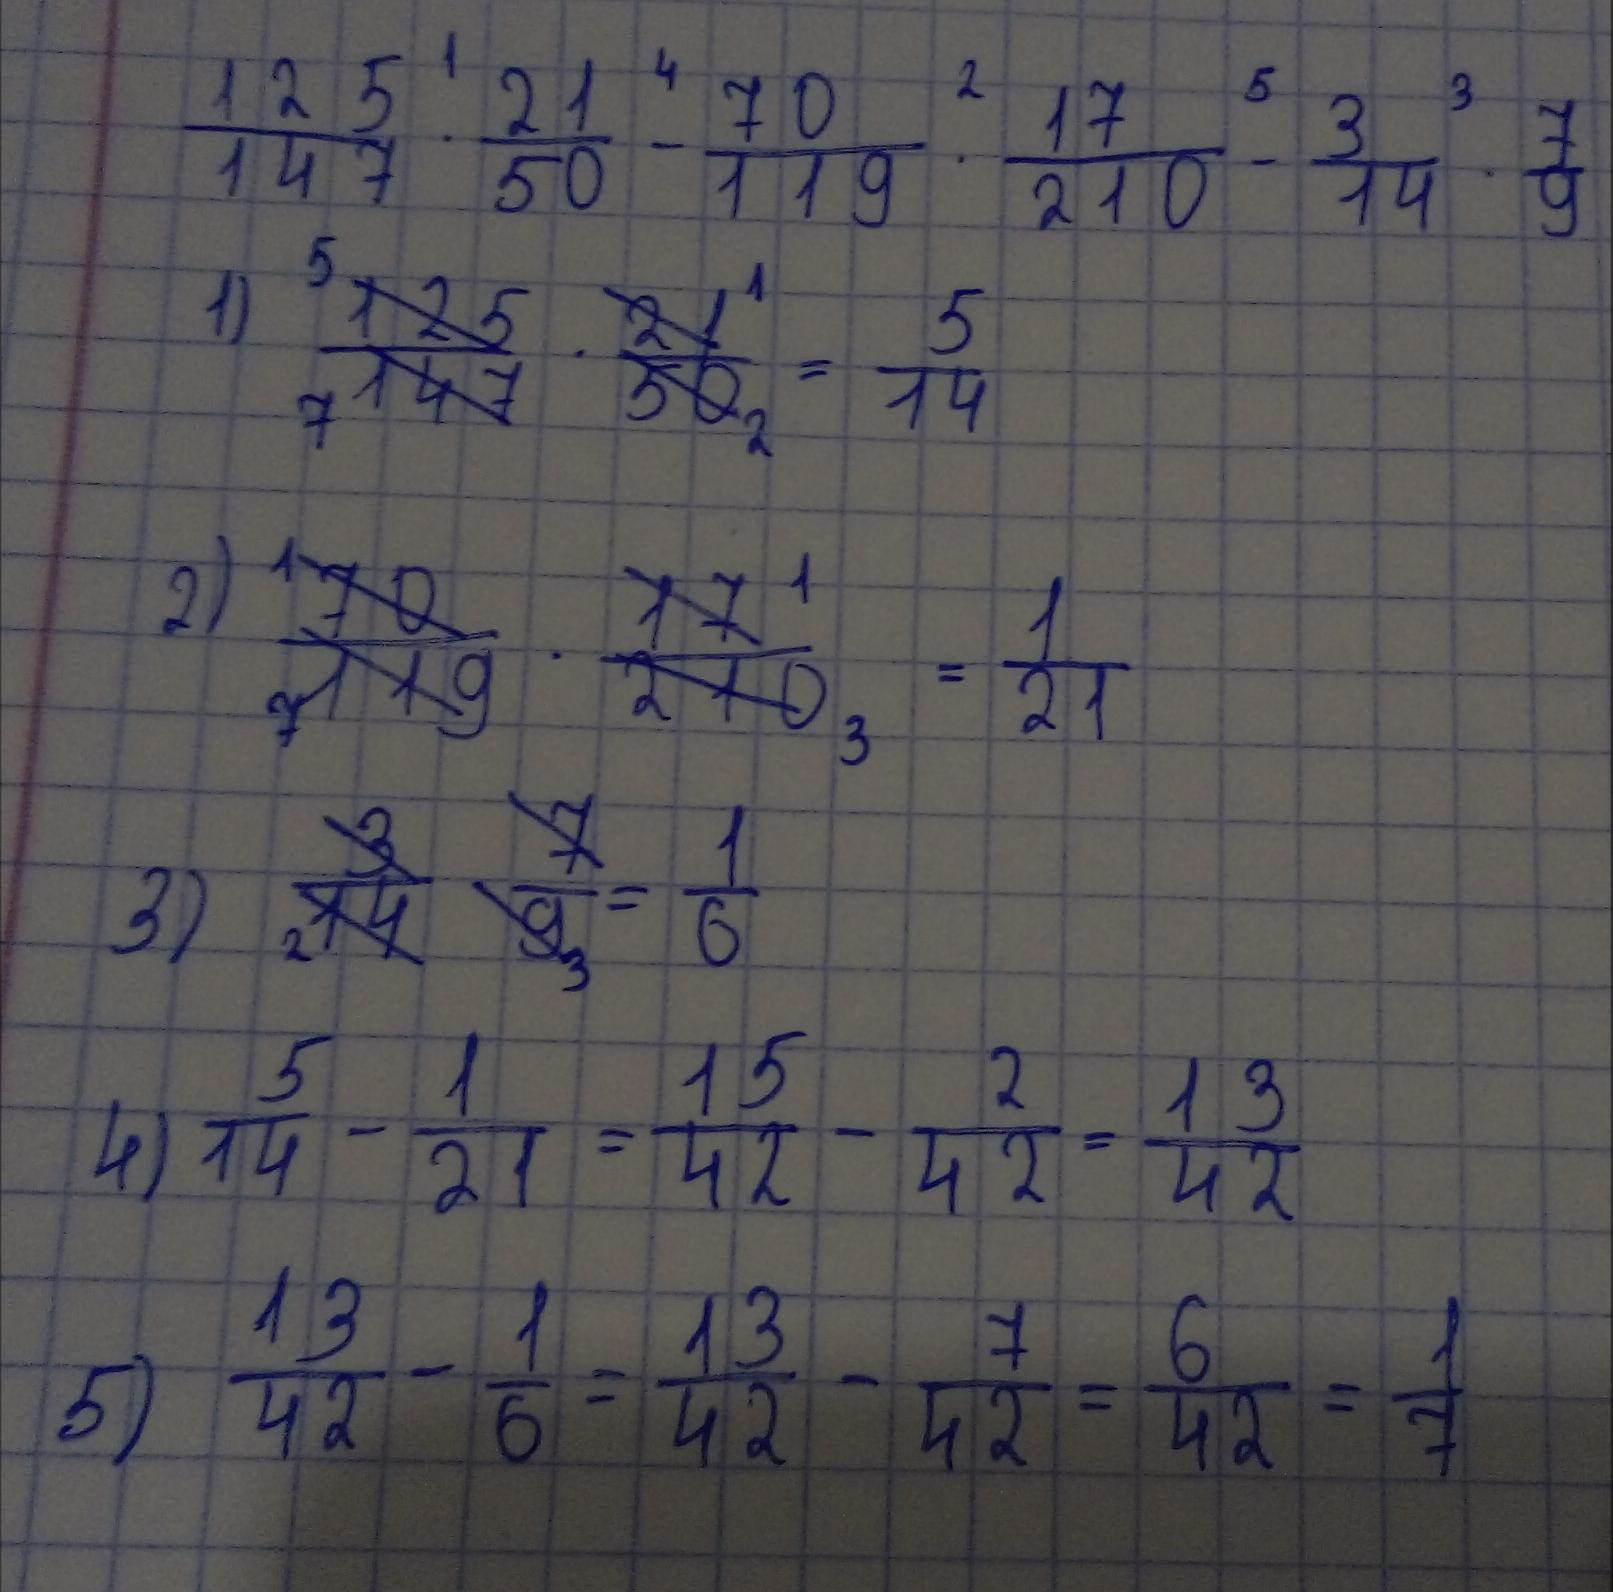 125/147 ·¹ 21/50 -⁴ 70/119 ·² 17/210 -⁵ 3/14 ·³ 7/9
1) ⁵125/₇147 · 21¹/50₂ = 5/14
2) ¹70/₇119 · 17¹/210₃ = 1/21
3) 3/₂14 7/9₃ = 1/6
4) 5/14 - 1/21 = 15/42 - 2/42 = 13/42
5) 13/42 - 1/6 = 13/42 - 7/42 = 6/42 = 1/7